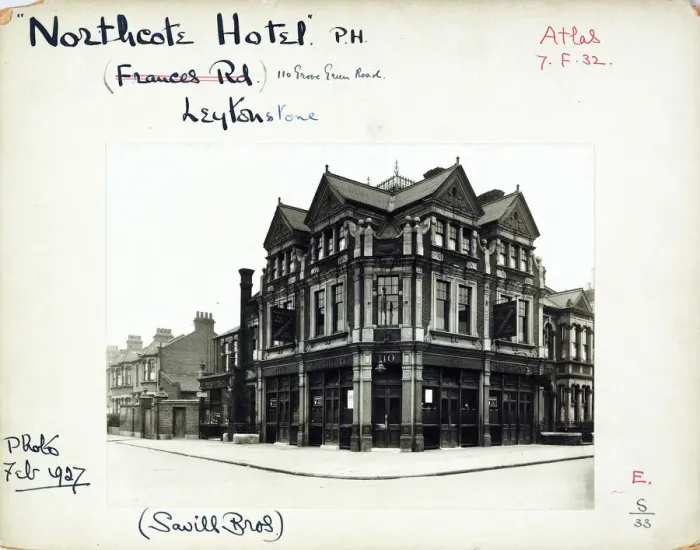 "Northcote Hotel". P.H.
Atlas
7. F. 32.
(Frances Rd.) 110 Grove Green Road.
Leytonstone
110
Photo
Feb 1927
(Savill Bros.)
E.
S
33